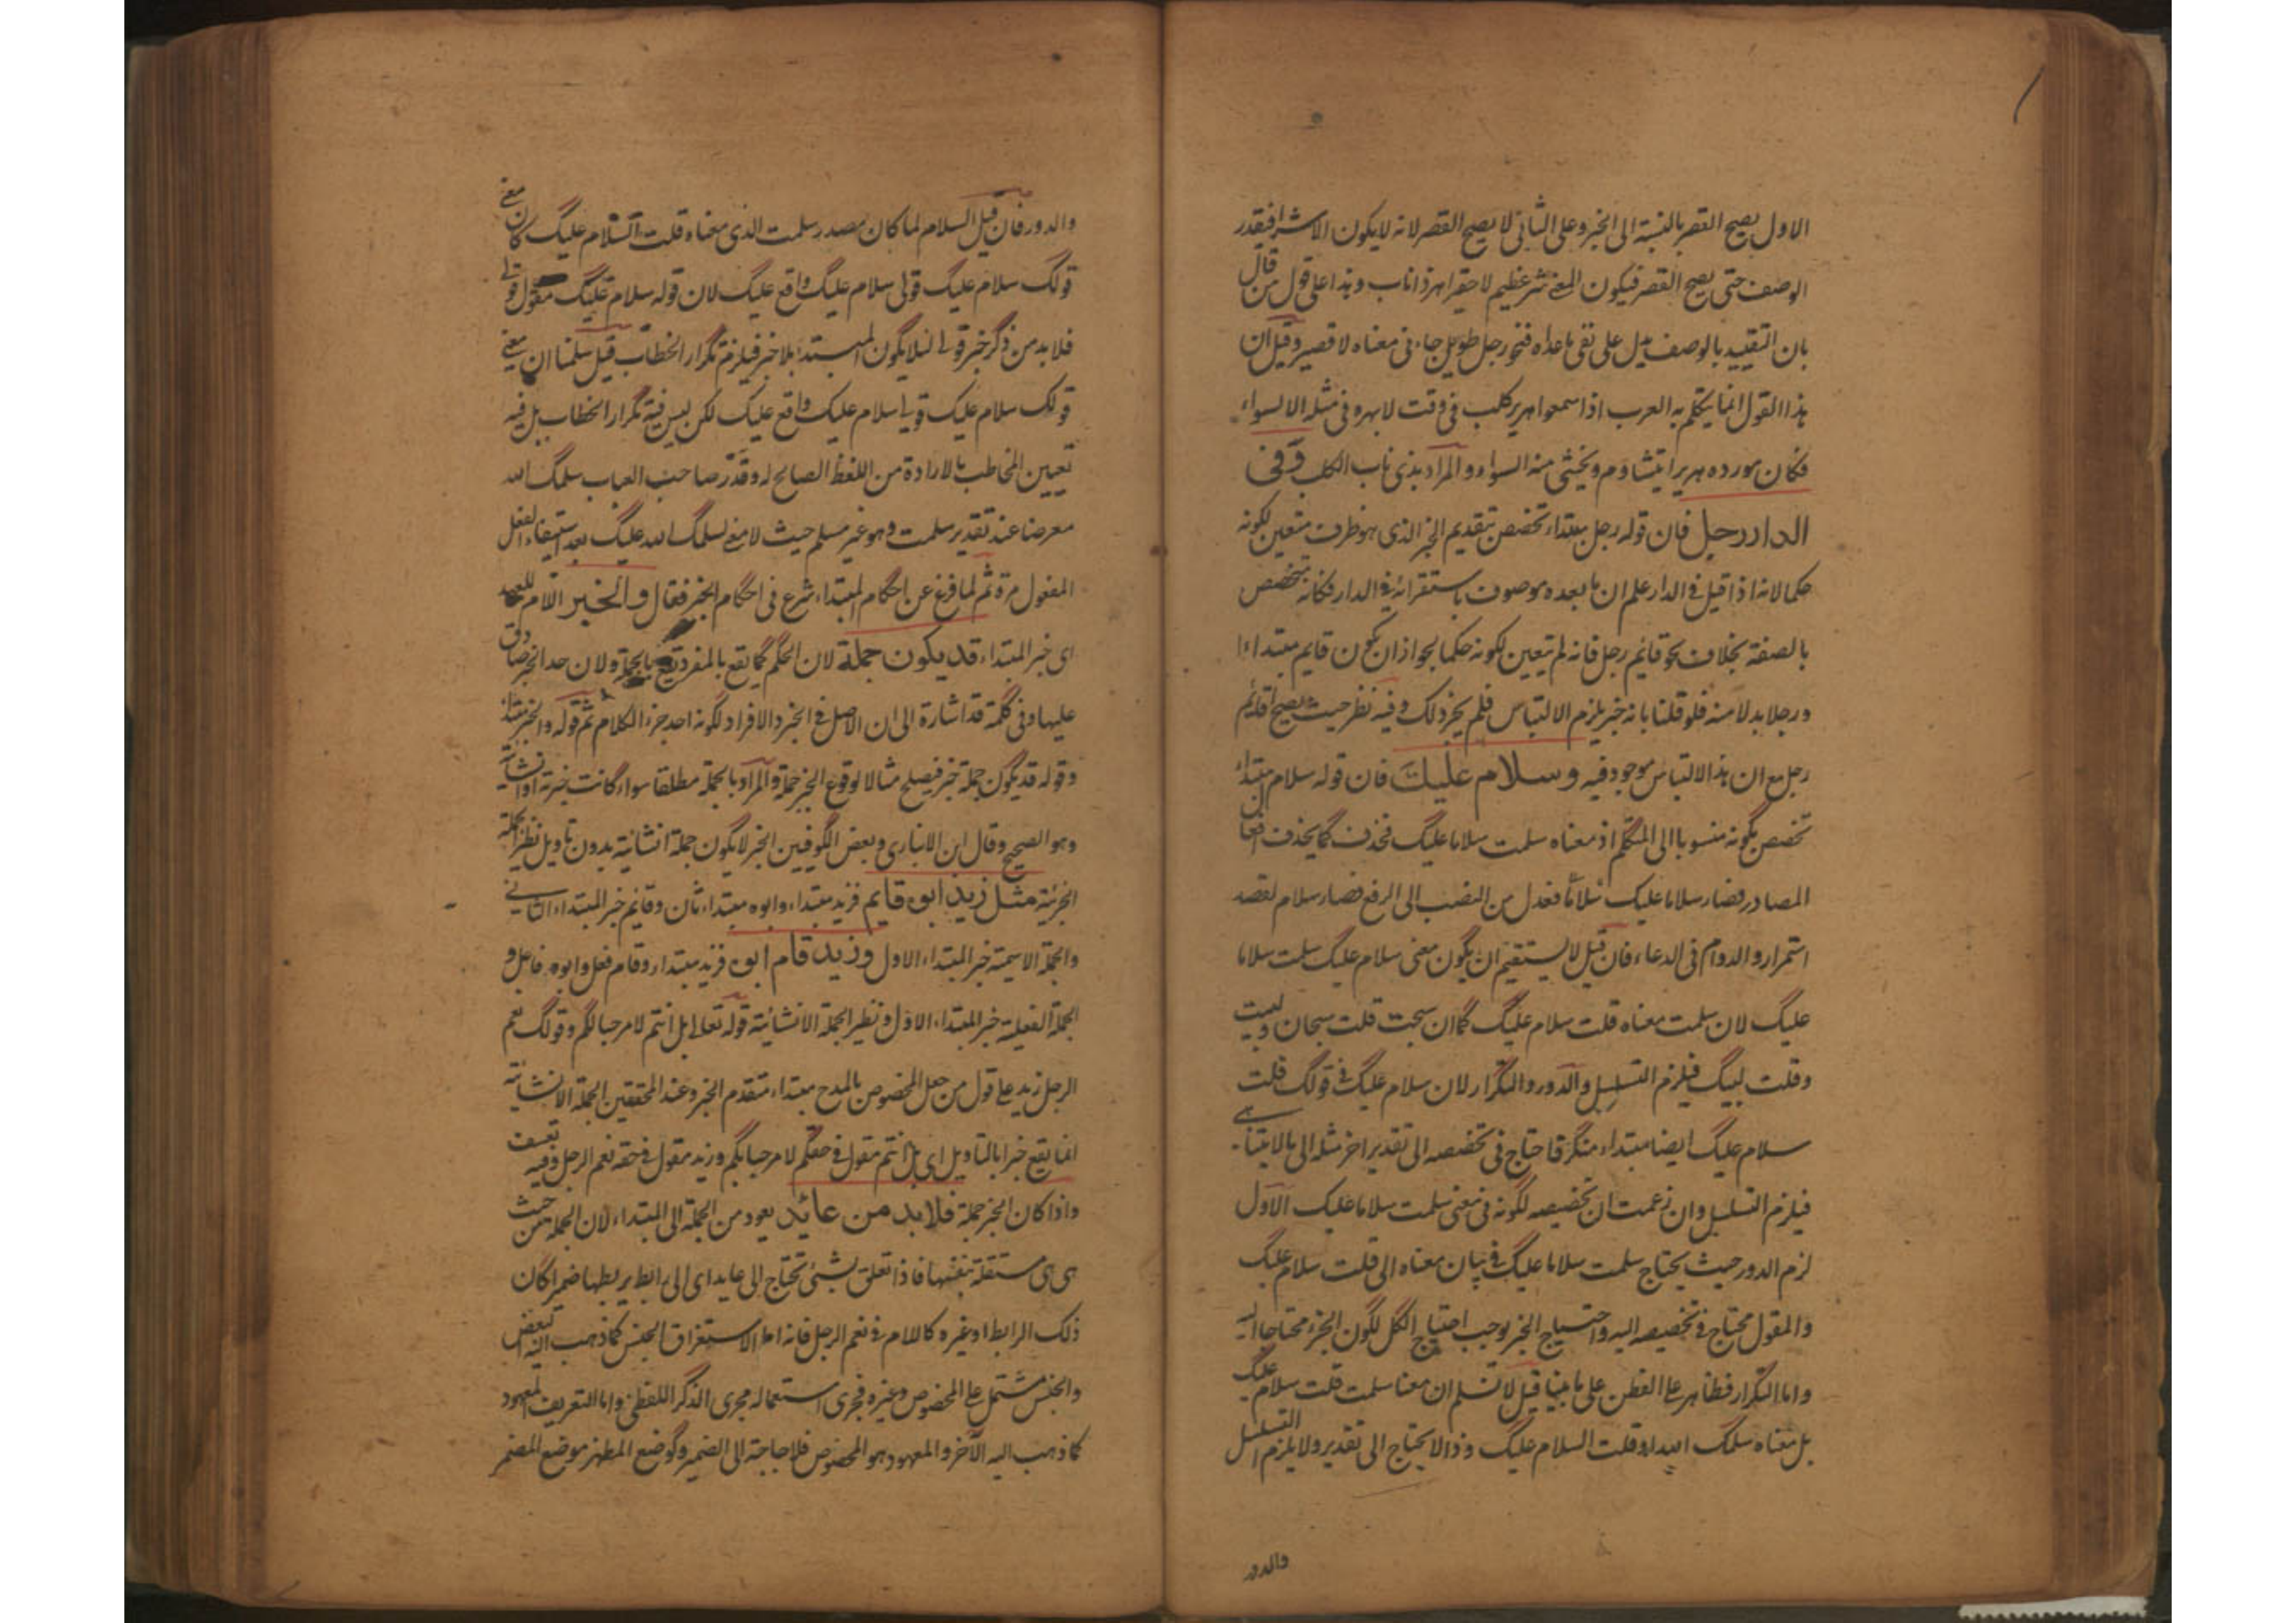 الاول يصح القصر بالنسبة الى الخبر وعلى الثانى لا يصح القصر لانه لا يكون الا شرا فقدر
الوصف حتى يصح القصر فيكون المعنى شر عظيم لا حقير اهر ذا ناب وهذا على قول من قال
بان التقييد بالوصف يدل على نفى ما عداه فنحو رجل طويل جاءنى معناه لا قصير وقيل ان
هذا القول انما يتكلم به العرب اذا سمعوا هرير كلب فى وقت لا يهره فى مثله الا لسوء
فكان مورده هريرا يتشاءم ويخشى منه السواء والمراد بذى ناب الكلب وفى
الدار رجل فان قوله رجل مبتداء تخصص بتقديم الخبر الذى هو ظرف متعين لكونه
حكما لانه اذا قيل فى الدار علم ان ما بعده موصوف باستقراره فى الدار فكانه تخصص
بالصفة بخلاف نحو قائم رجل فانه لم يتعين لكونه حكما لجواز ان يكون قايم مبتداءا
ورجلا بدلا منه فلو قلنا بانه خبر يلزم الالتباس فلم يجز ذلك وفيه نظر حيث يصح اقائم
رجل مع ان هذا الالتباس موجود فيه وسلام عليك فان قوله سلام مبتداء
تخصص بكونه منسوبا الى المتكلم اذ معناه سلمت سلاما عليك فحذف كما يحذف افعال
المصادر فصار سلاما عليك فعدل من النصب الى الرفع فصار سلام لقصد
استمرار والدوام فى الدعاء فان قيل لا يستقيم ان يكون معنى سلام عليك سلمت سلاما
عليك لان سلمت معناه قلت سلام عليك كما ان سبحت قلت سبحان ولبيت
وقلت لبيك فيلزم التسلسل والدور والتكرار لان سلام عليك فى قولك قلت
سلام عليك ايضا مبتداء منكر فاحتاج فى تخصصه الى تقدير اخر مثله الى ما لا يتناهى
فيلزم التسلسل وان زعمت ان تخصيصه لكونه فى معنى سلمت سلاما عليك الاول
لزم الدور حيث يحتاج سلمت سلاما عليك فى بيان معناه الى قلت سلام عليك
والمقول محتاج فى تخصيصه اليه واحتياج الجزء يوجب احتياج الكل لكون الجزء محتاجا اليه
واما التكرار فظاهر على الفطن على ما بينا قيل لا نسلم ان معنا سلمت قلت سلام عليك
بل معناه سلمك الله او قلت السلام عليك وذا لا يحتاج الى تقدير ولا يلزم التسلسل
والدور
والدور فان قيل السلام لما كان مصدر سلمت الذى معناه قلت السلام عليك كان معنى
قولك سلام عليك قولى سلام عليك واقع عليك لان قوله سلام عليك مقول قولى
فلا بد من ذكر خبر قولى لئلا يكون المبتدء بلا خبر فيلزم تكرار الخطاب قيل سلمنا ان معنى
قولك سلام عليك قولى سلام عليك واقع عليك لكن ليس فيه تكرار الخطاب بل فيه
تعيين المخاطب بالارادة من اللفظ الصالح له وقدّر صاحب العباب سلمك الله
معرضا عند تقدير سلمت وهو غير مسلم حيث لا معنى لسلمك الله عليك بعد استيفاء الفعل
المفعول مرة ثم لما فرغ عن احكام المبتداء شرع فى احكام الخبر فقال والخبر اللام للعهد
اى خبر المبتداء قد يكون جملة لان الحكم كما يقع بالمفرد يقع بالجملة ولان حد الخبر صادق
عليها وفى كلمة قد اشارة الى ان الاصل فى الخبر الافراد لكونه احد جزء الكلام ثم قوله والخبر مبتداء
وقوله قد يكون جملة خبر فيصلح مثالا لوقوع الخبر جملة والمراد بالجملة مطلقا سواء كانت خبرية او انشائية
وهو الصحيح وقال ابن الانبارى وبعض الكوفيين الخبر لا يكون جملة انشائية بدون تاويل نظير الجملة
الخبرية مثل زيد ابوه قايم فزيد مبتداء وابوه مبتداء ثان وقائم خبر المبتداء الثانى
والجملة الاسمية خبر المبتداء الاول وزيد قام ابوه فزيد مبتداء وقام فعل وابوه فاعل و
الجملة الفعلية خبر المبتداء الاول ونظير الجملة الانشائية قوله تعالى بل انتم لا مرحبا بكم وقولك نعم
الرجل زيد على قول من جعل المخصوص بالمدح مبتداء متقدم الخبر وعند المحققين الجملة الانشائية
انما يقع خبرا بالتاويل اى بل انتم مقول فى حقكم لا مرحبا بكم وزيد مقول فى حقه نعم الرجل وفيه تعسف
واذا كان الخبر جملة فلا بد من عائد يعود من الجملة الى المبتداء لان الجملة من حيث
هى هى مستقلة بنفسها فاذا تعلق بشئ تحتاج الى عايد اى الى رابط يربطها ضميرا كان
ذلك الرابط او غيره كاللام فى نعم الرجل فانه اما لاستغراق الجنس كما ذهب اليه البعض
والجنس مشتمل على المخصوص وغيره فجرى استعماله مجرى الذكر اللفظى واما التعريف المعهود
كما ذهب اليه الآخر والمعهود هو المخصوص فلا حاجة الى الضمير وكوضع المظهر موضع المضمر